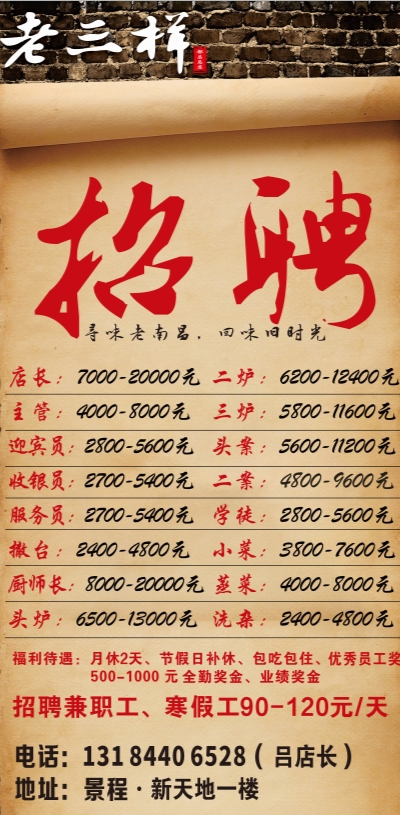 老三样
招聘
寻味老南昌，回味旧时光
店长：7000-20000元 二炉：6200-12400元
主管：4000-8000元 三炉：5800-11600元
迎宾员：2800-5600元 头案：5600-11200元
收银员：2700-5400元 二案：4800-9600元
服务员：2700-5400元 学徒：2800-5600元
撤台：2400-4800元 小菜：3800-7600元
厨师长：8000-20000元 蒸菜：4000-8000元
头炉：6500-13000元 洗杂：2400-4800元
福利待遇：月休2天、节假日补休、包吃包住、优秀员工奖
500-1000 元 全勤奖金、业绩奖金
招聘兼职工、寒假工90-120元/天
电话：131 8440 6528（吕店长）
地址：景程·新天地一楼